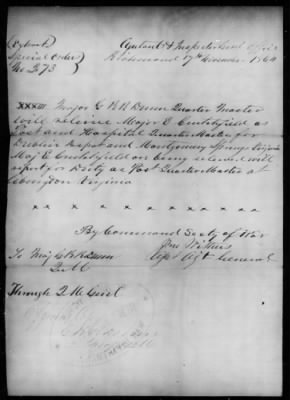 (Extract) Adjutant & Inspector Genl Office
Special Order Richmond 17th November 1864
No 273
XXXIII Major G R R Dunn Quarter Master
will relieve Major E Critchfield as
Post and Hospital Quarter Master for
Dublin Depot and Montgomery Springs Virginia
Maj E Critchfield on being relieved will
report for Duty as Post Quarter Master at
Abingdon Virginia
x x x x x x x
By Command Secty of War
Jno Withers
To Maj G R R Dunn Asst Adjt General
Q M
Through Q M Genl